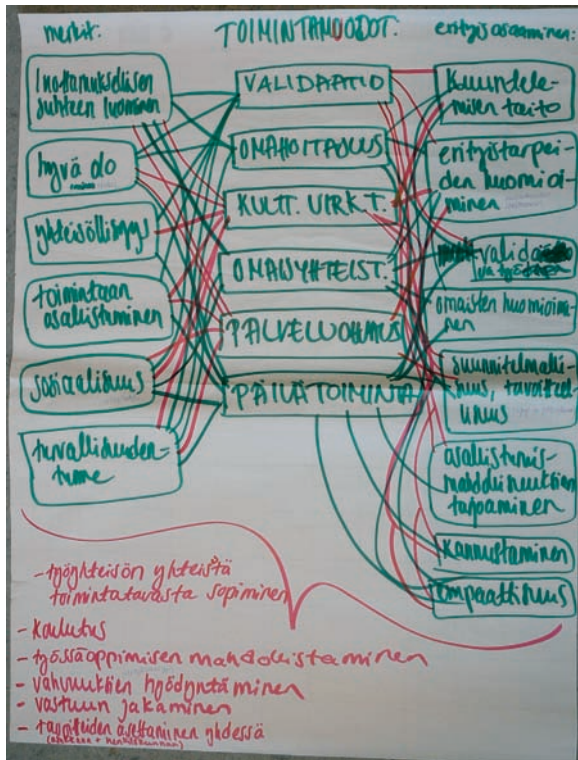 merkit:
TOIMINTAMUODOT.
erityisosaaminen:
luottamuksellisen
suhteen luominen
hyvä olo
yhteisöllisyys
toimintaan
osallistuminen
sosiaalisuus
turvallisuuden-
tunne
VALIDAATIO
OMAHOITAJUUS
KULTT. VIRK.T.
OMAISYHTEIST.
PALVELUOHJAUS
PÄIVÄTOIMINTA
kuuntele-
misen taito
erityistarpei-
den huomioi-
minen
omaisten huomioimi-
nen
suunnitelmalli-
suus, tavoitteel-
lisuus
osallistumis-
mahdollisuuksien
tarjoaminen
Kannustaminen
Empaattisuus
-työyhteisön yhteistä
toimintatavasta sopiminen
- koulutus
- työssäoppimisen mahdollistaminen
- vahvuuksien hyödyntäminen
- vastuun jakaminen
- tavoitteiden asettaminen yhdessä